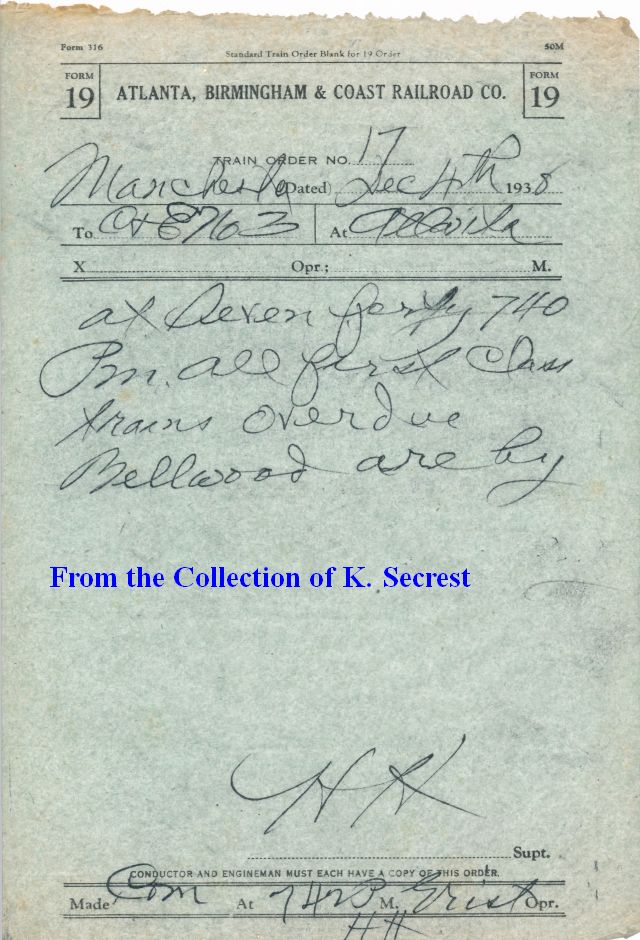 Form 316 50M
Standard Train Order Blank for 19 Order
FORM 19 ATLANTA, BIRMINGHAM & COAST RAILROAD CO. FORM 19
TRAIN ORDER NO. 17
Manchester (Dated) Dec 4th 1938
To C&E 763 At
X Opr.; M.
at Seven forty 740
Pm. all first Class
trains overdue
Bellwood are by
From the Collection of K. Secrest
H K
Supt.
CONDUCTOR AND ENGINEMAN MUST EACH HAVE A COPY OF THIS ORDER.
Made Com At 742 P. M. Grist Opr.